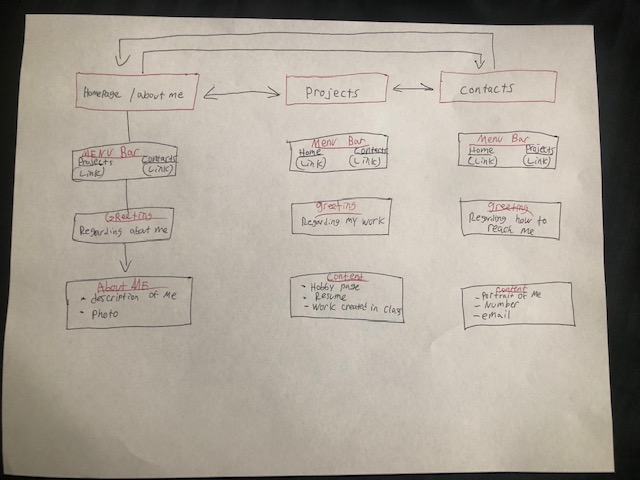 Homepage / about me
MENU Bar
Projects Contacts
(Link) (Link)
GReeting
Regarding about me
About ME
- description of Me
- Photo
Projects
Menu Bar
Home Contacts
(Link) (Link)
greeting
Regarding My work
Content
- Hobby page
- Resume
- Work created in class
Contacts
Menu Bar
Home Projects
(Link) (Link)
greeting
Regarding how to
reach me
Content
- Portrait of Me
- Number
- email